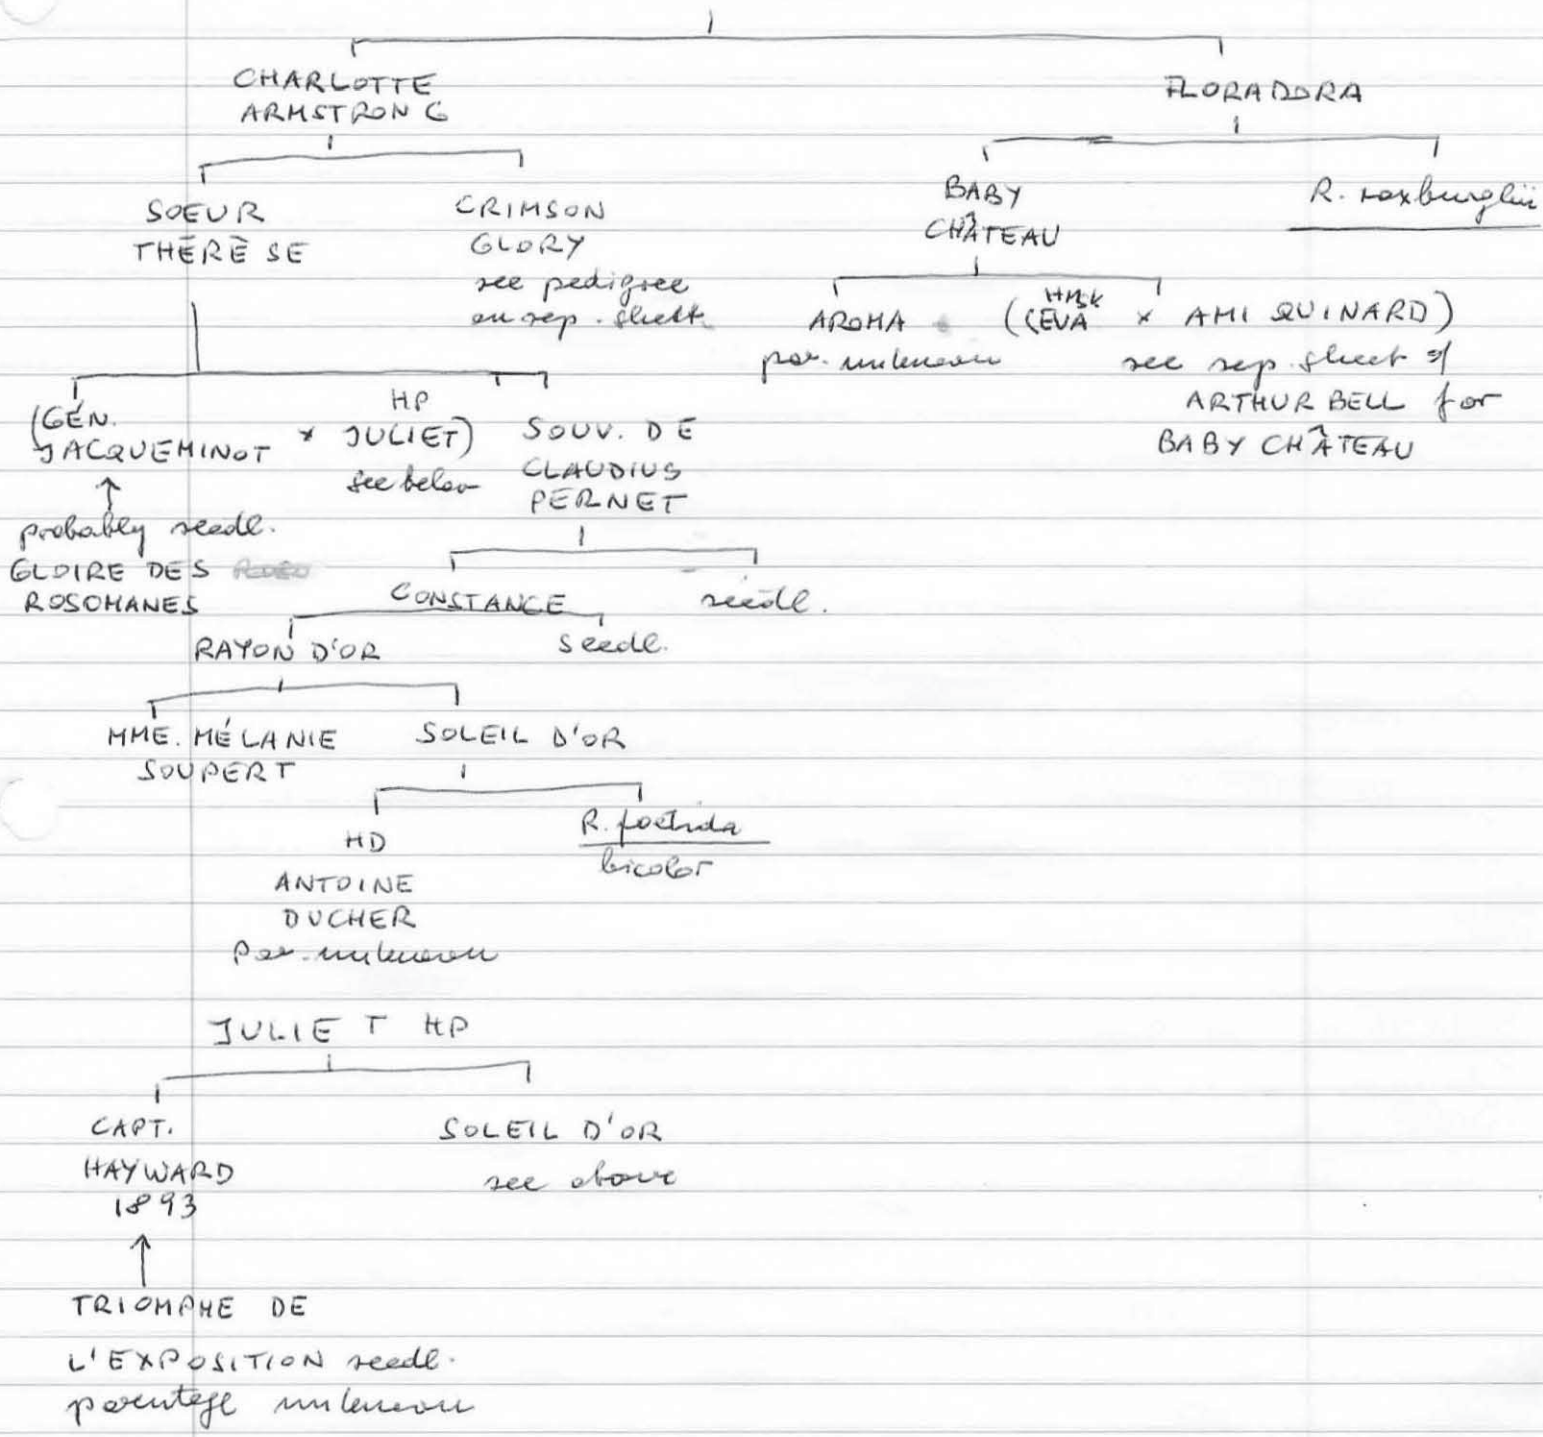 CHARLOTTE
ARMSTRONG
FLORADORA
SOEUR
THÉRÈSE
CRIMSON
GLORY
see pedigree
on sep. sheet
BABY
CHÂTEAU
R. roxburghii
AROMA
par. unknown
HMsk
(EVA × AMI QUINARD)
see sep. sheet of
ARTHUR BELL for
BABY CHÂTEAU
(GÉN.
JACQUEMINOT ×
HP
JULIET)
see below
SOUV. DE
CLAUDIUS
PERNET
↑
probably seedl.
GLOIRE DES
ROSOMANES
CONSTANCE
seedl.
RAYON D'OR
seedl.
MME. MÉLANIE
SOUPERT
SOLEIL D'OR
HD
ANTOINE
DUCHER
Par. unknown
R. foetida
bicolor
JULIET HP
CAPT.
HAYWARD
1893
SOLEIL D'OR
see above
↑
TRIOMPHE DE
L'EXPOSITION seedl.
parentage unknown